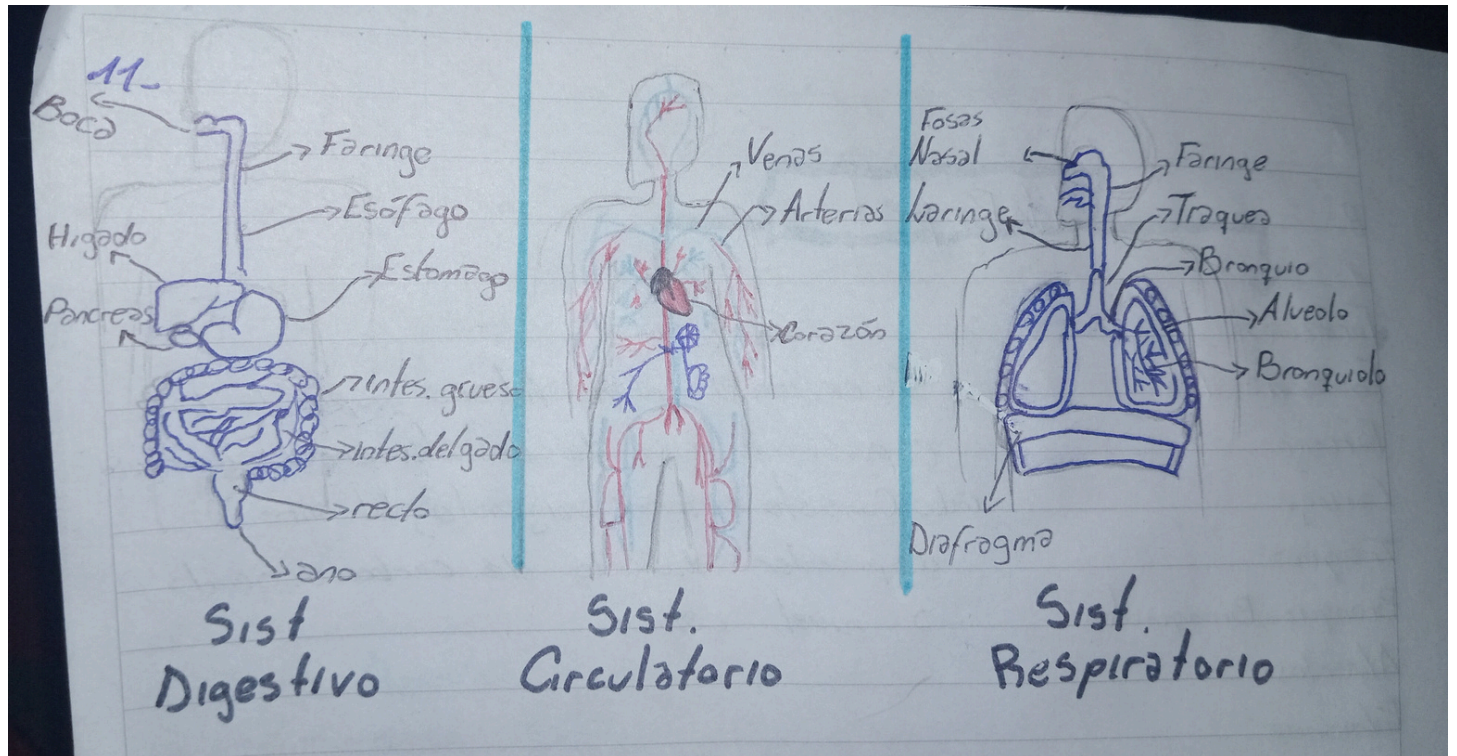 11-
Boca
Faringe
Esófago
Higado
Estomago
Pancreas
intes. grueso
intes. delgado
recto
ano
Sist
Digestivo
Venas
Arterias
Corazón
Sist.
Circulatorio
Fosas
Nasal
Faringe
Laringe
Traquea
Bronquio
Alveolo
Bronquiolo
Diafragma
Sist.
Respiratorio